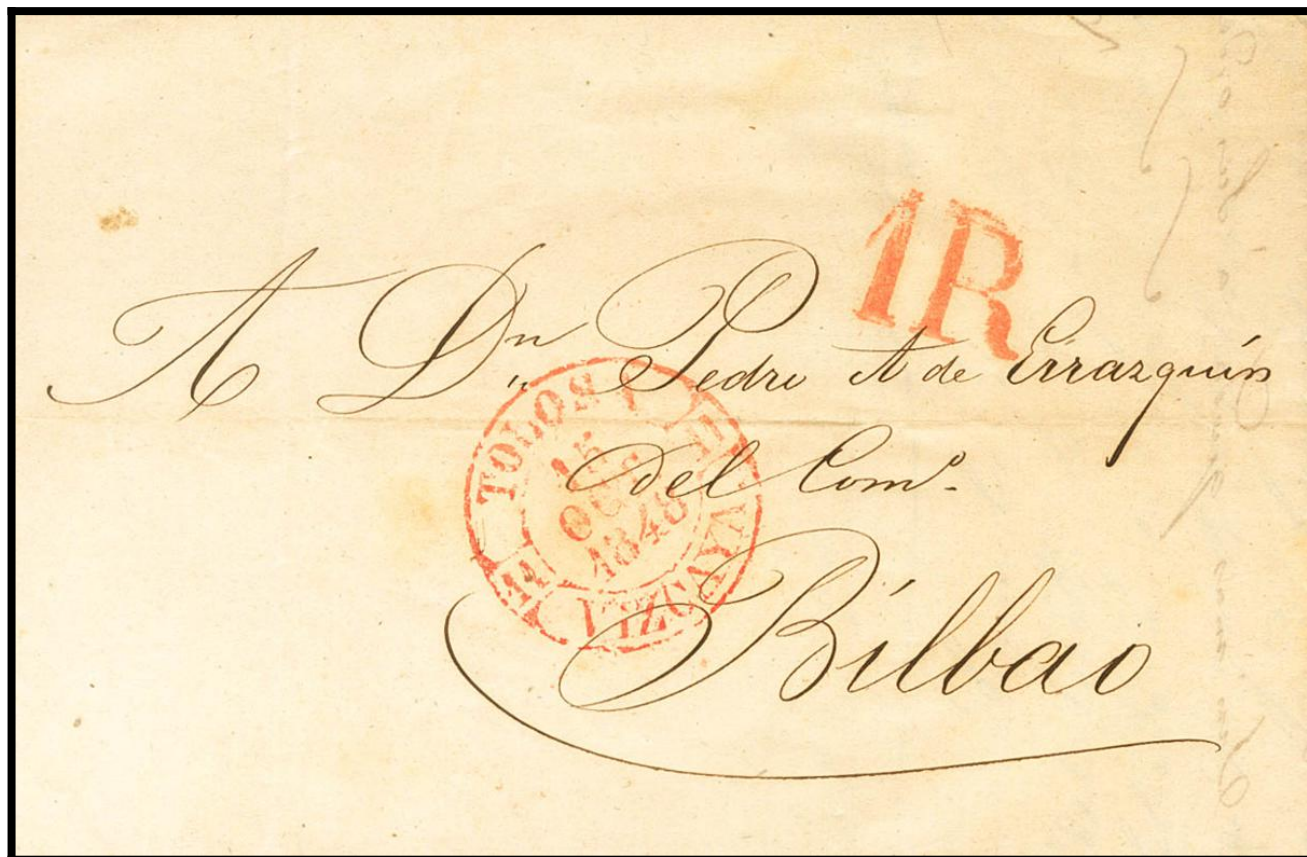 1R
A Dn Pedro A de Eirazquin
del Como.
Bilbao
TOLOSA
15
OCT
1848
VIZCAYA